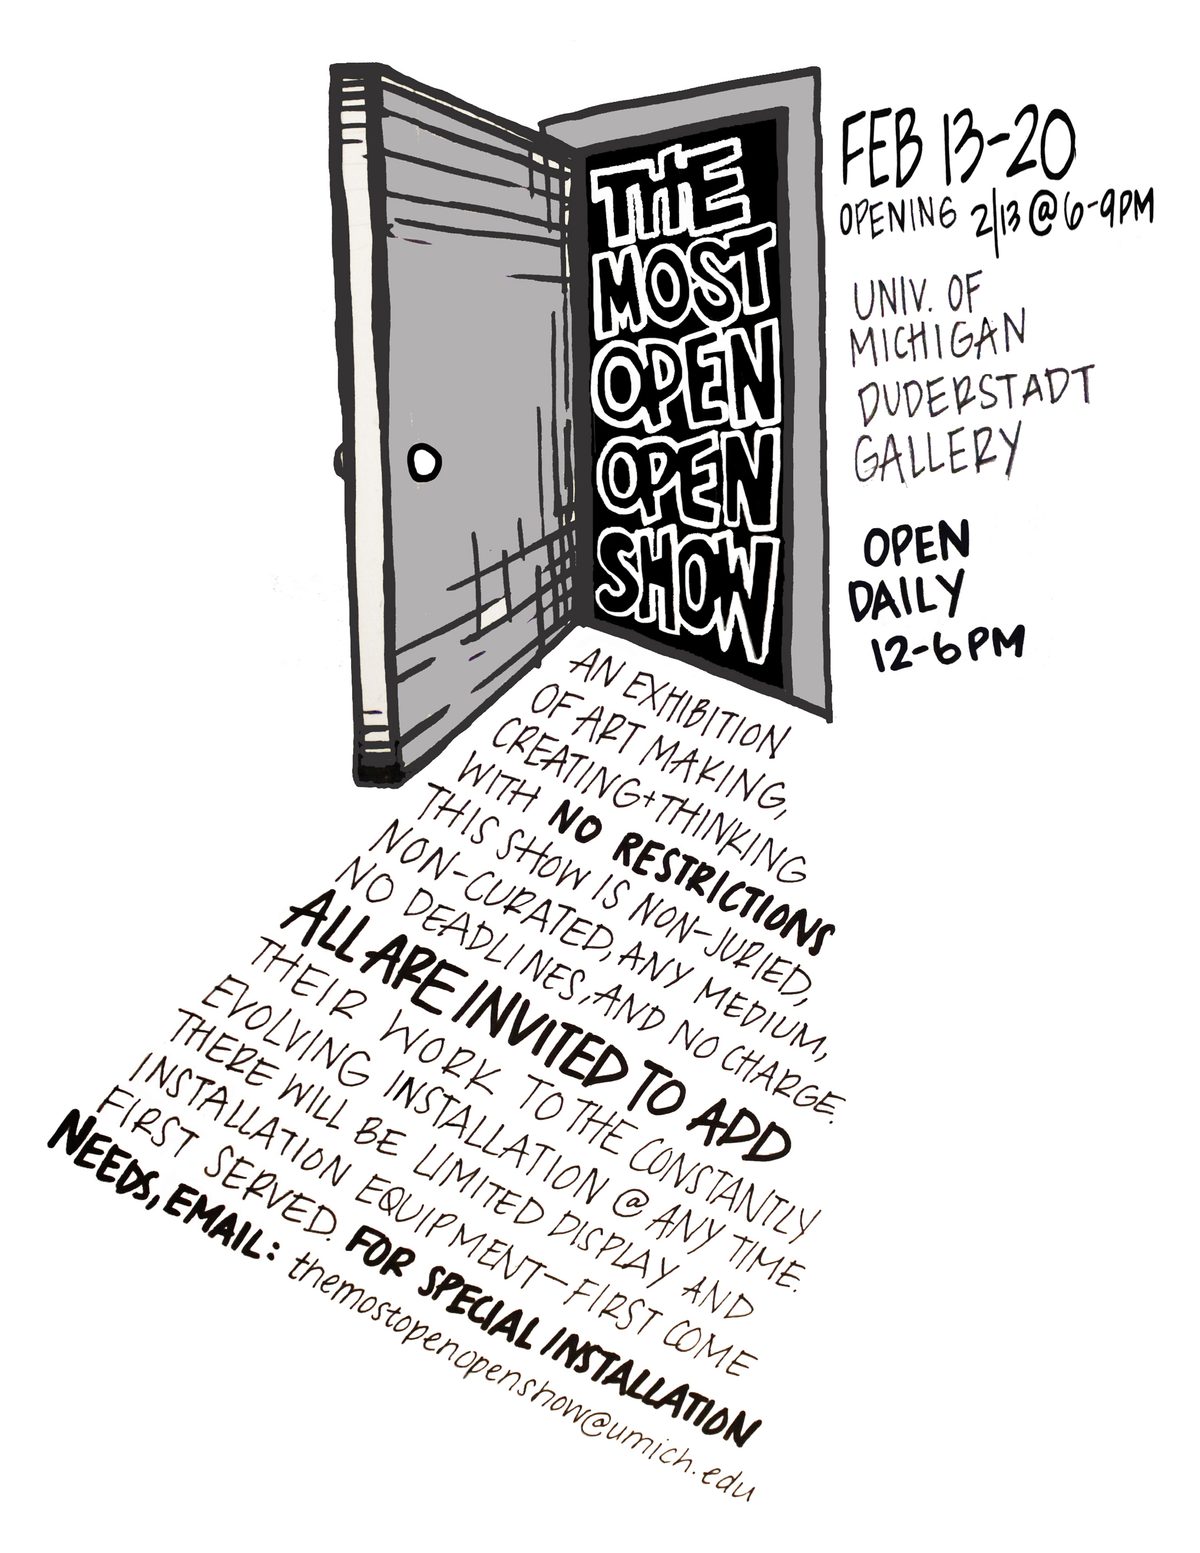 THE
MOST
OPEN
OPEN
SHOW
FEB 13-20
OPENING 2/13 @ 6-9PM
UNIV. OF
MICHIGAN
DUDERSTADT
GALLERY
OPEN
DAILY
12-6PM
AN EXHIBITION
OF ART MAKING,
CREATING+THINKING
WITH NO RESTRICTIONS
THIS SHOW IS NON-JURIED,
NON-CURATED, ANY MEDIUM,
NO DEADLINES, AND NO CHARGE.
ALL ARE INVITED TO ADD
THEIR WORK TO THE CONSTANTLY
EVOLVING INSTALLATION @ ANY TIME.
THERE WILL BE LIMITED DISPLAY AND
INSTALLATION EQUIPMENT-FIRST COME
FIRST SERVED. FOR SPECIAL INSTALLATION
NEEDS, EMAIL: themostopenopenshow@umich.edu